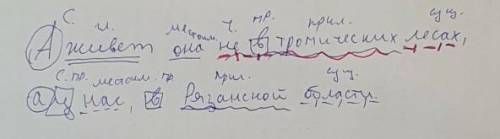 С. местоим. ч. пр. прил. сущ.
А живет она не в тропических лесах,
С. пр. местоим. пр прил. сущ.
а у нас, в Рязанской области.